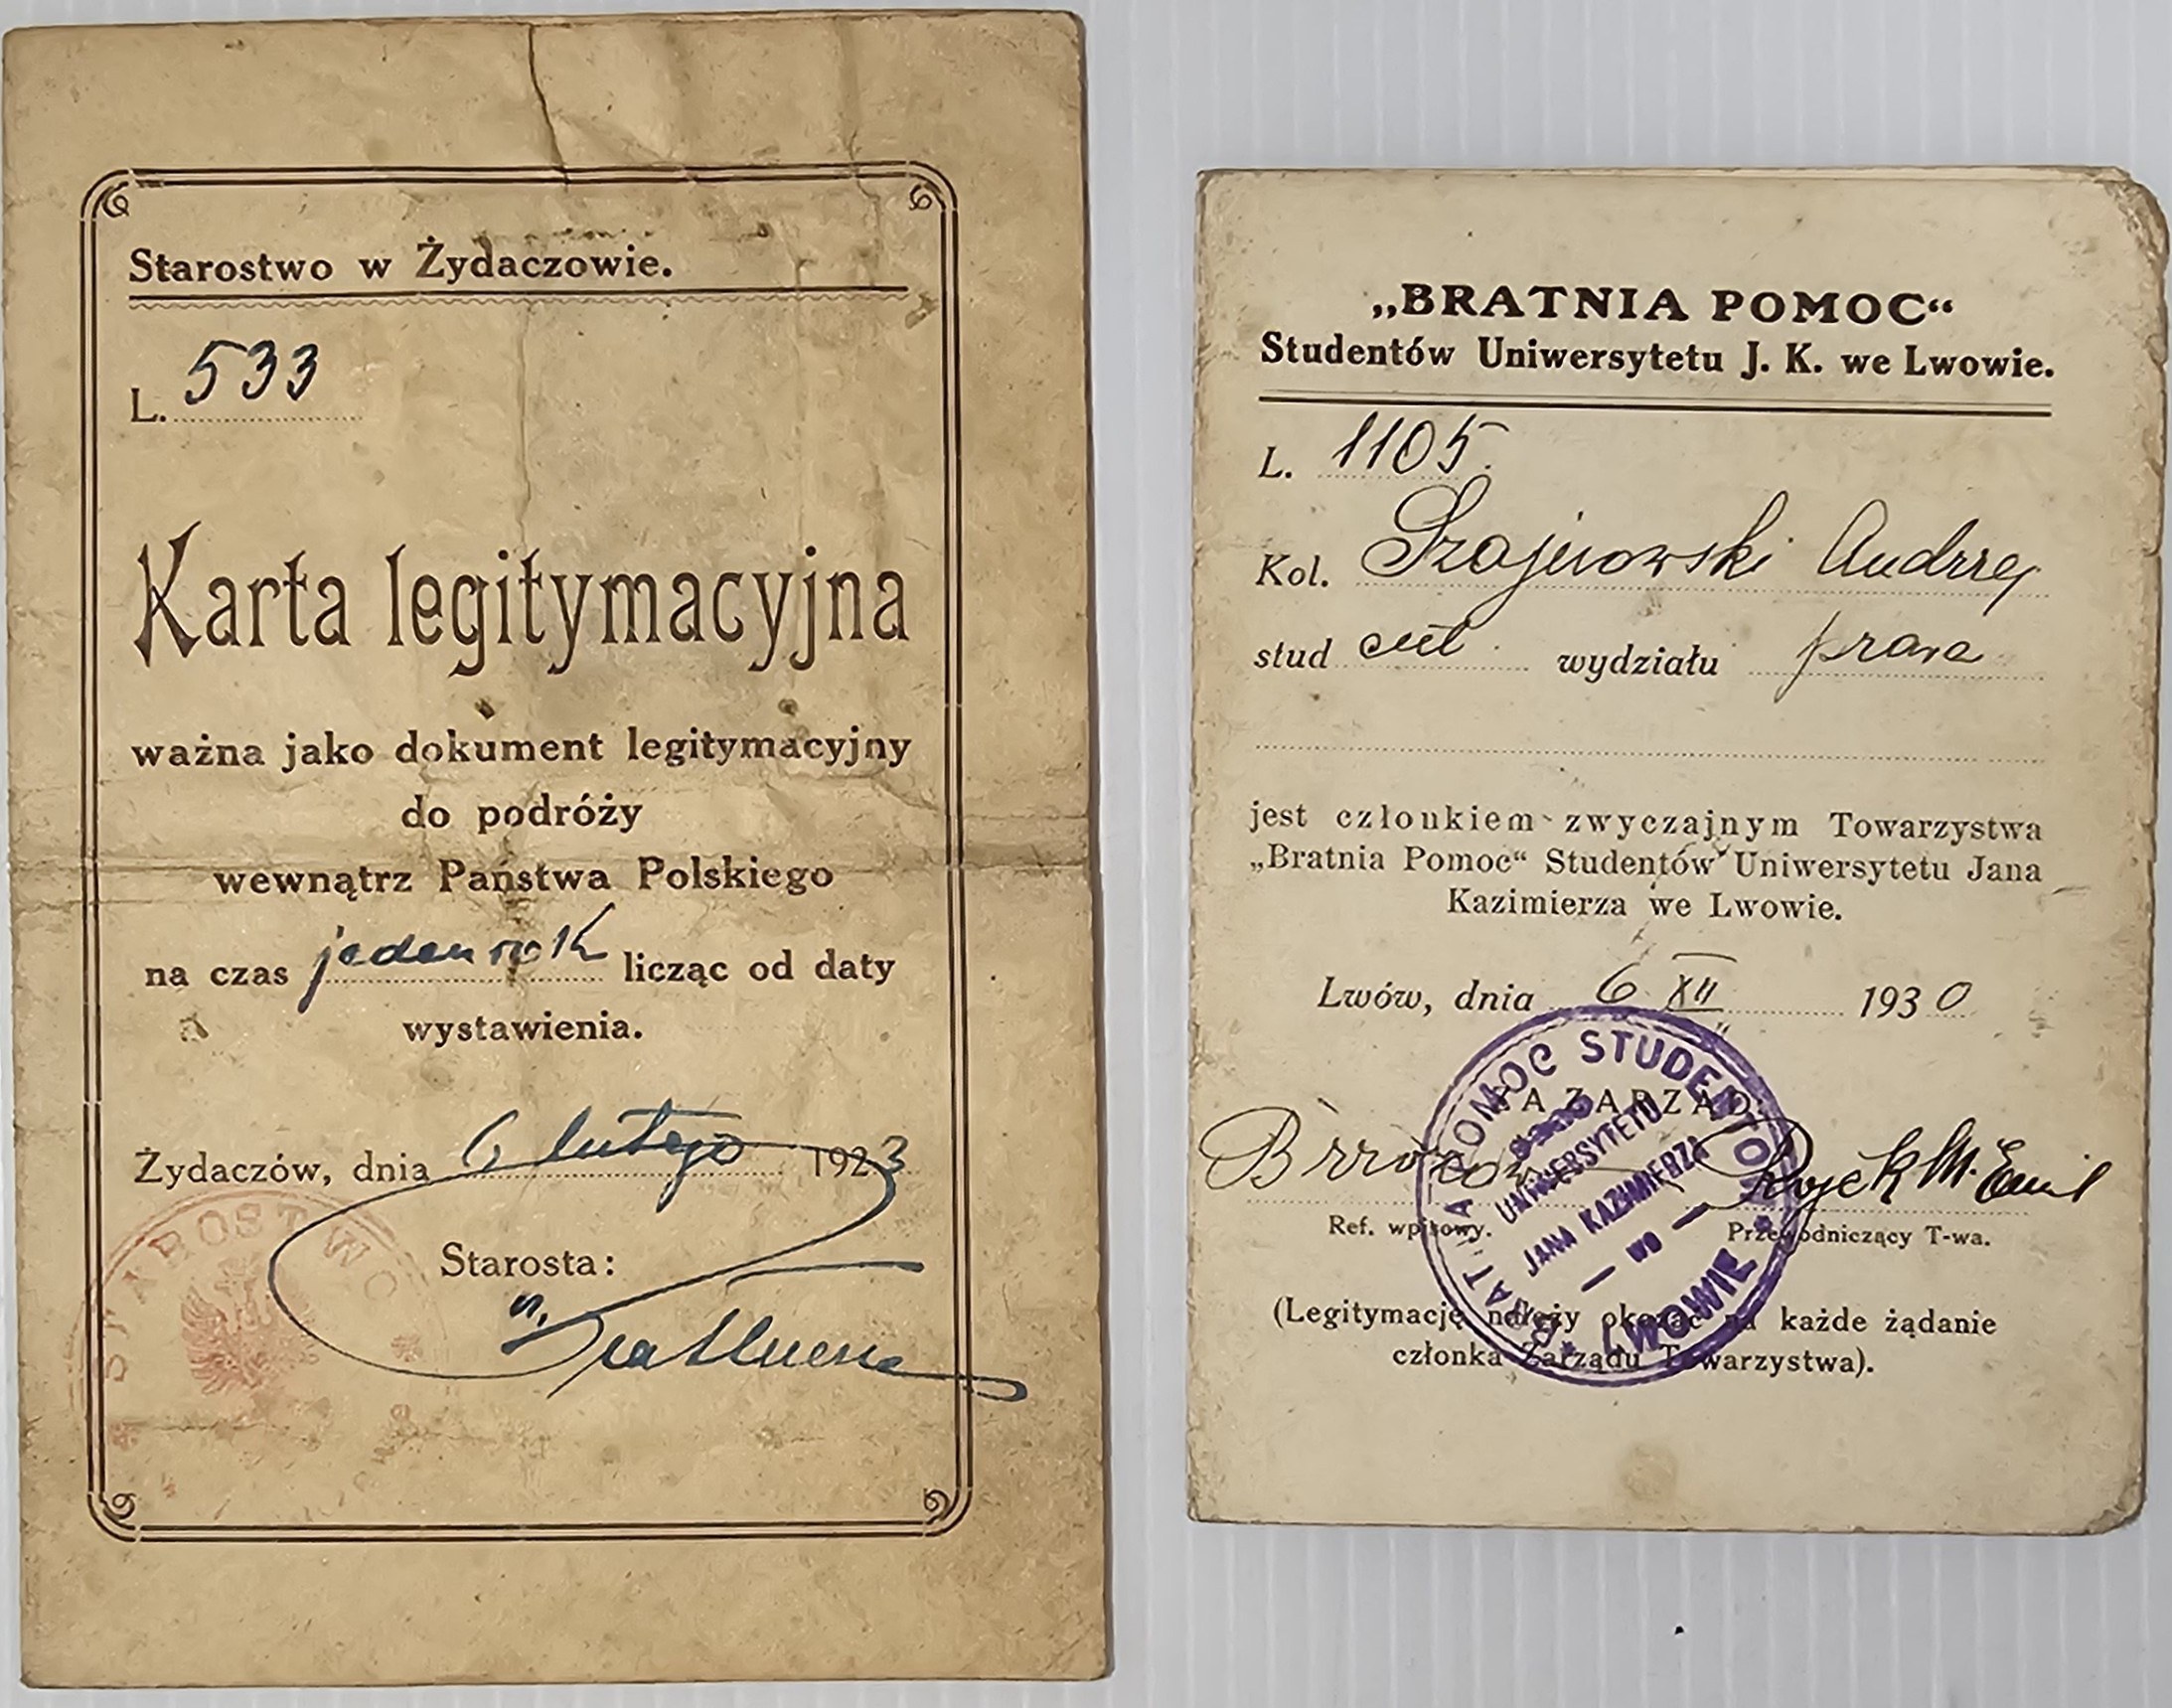 Starostwo w Żydaczowie.
L. 533
Karta legitymacyjna
ważna jako dokument legitymacyjny
do podróży
wewnątrz Państwa Polskiego
na czas jeden rok licząc od daty
wystawienia.
Żydaczów, dnia 6 lutego 1923
Starosta:
STAROSTWO
„BRATNIA POMOC“
Studentów Uniwersytetu J. K. we Lwowie.
L. 1105
Kol. Szajnowski Andrzej
stud wydziału prawa
jest człoukiem zwyczajnym Towarzystwa
„Bratnia Pomoc“ Studentów Uniwersytetu Jana
Kazimierza we Lwowie.
Lwów, dnia 6 XII 1930
ZA ZARZĄD
Rojek M. Emil
Ref. wpisowy. Przewodniczący T-wa.
BRATNIA POMOC STUDENTÓW
UNIWERSYTETU
JANA KAZIMIERZA
— WE —
LWOWIE
(Legitymację należy okazać na każde żądanie
członka Zarządu Towarzystwa).